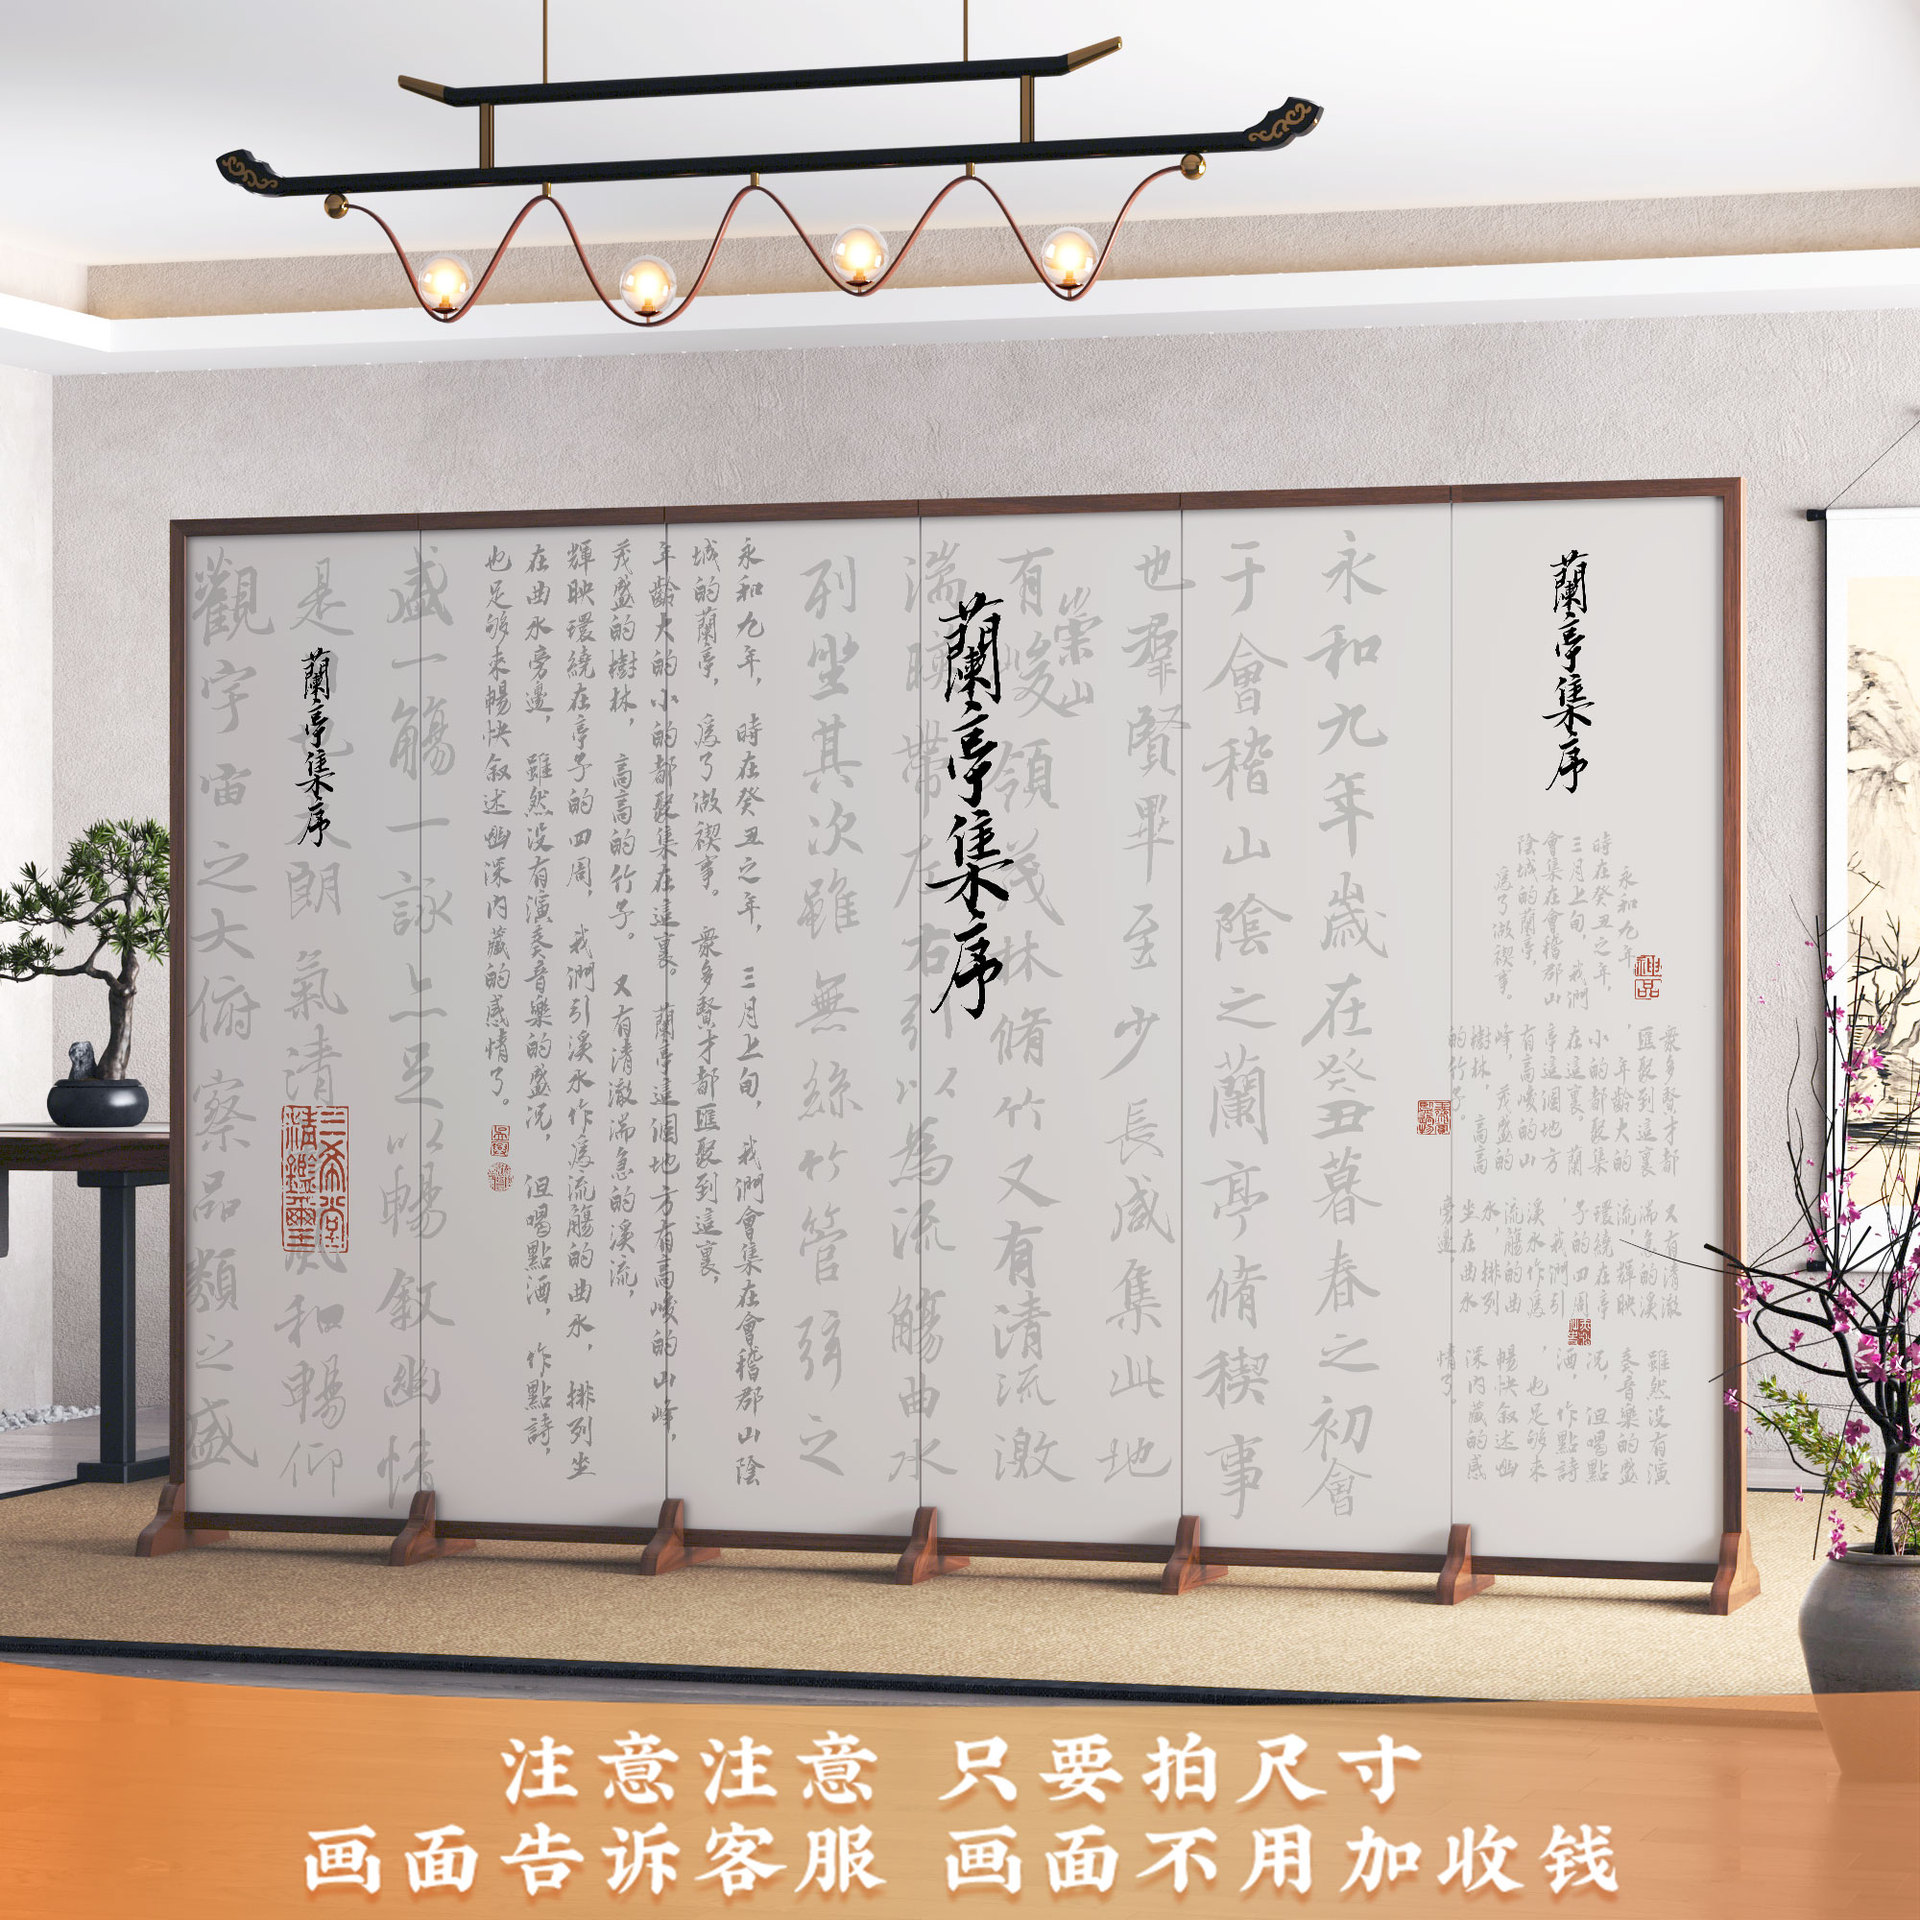 蘭亭集序
永和九年
時在癸丑之年，
三月上旬，我們
會集在會稽郡山
陰城的蘭亭，
爲了做禊事。
神品
衆多賢才都
匯聚到這裏
，年齡大的
小的都聚集
在這裏。蘭
亭這個地方
有高峻的山
峰，茂盛的
樹林，高高
的竹子。
又有清澈
湍急的溪
流，輝映
環繞在亭
子的四周
，我們引
溪水作爲
流觴的曲
水，排列
坐在曲水
旁邊，
雖然没有演
奏音樂的盛
况，但喝點
酒，作點詩
，也足够來
暢快叙述幽
深内藏的感
情了。
永和九年歲在癸丑暮春之初會
于會稽山陰之蘭亭脩禊事
也羣賢畢至少長咸集此地
有峻領茂林脩竹又有清流激
崇山
湍暎帶左右引以為流觴曲水
列坐其次雖無絲竹管弦之
蘭亭集序
永和九年，時在癸丑之年，三月上旬，我們會集在會稽郡山陰
城的蘭亭，爲了做禊事。衆多賢才都匯聚到這裏，
年齡大的小的都聚集在這裏。蘭亭這個地方有高峻的山峰，
茂盛的樹林，高高的竹子。又有清澈湍急的溪流，
輝映環繞在亭子的四周，我們引溪水作爲流觴的曲水，排列坐
在曲水旁邊，雖然没有演奏音樂的盛况，但喝點酒，作點詩，
也足够來暢快叙述幽深内藏的感情了。
盛一觴一詠亦足以暢敘幽情
是日也天朗氣清惠風和暢仰
觀宇宙之大俯察品類之盛
蘭亭集序
三希堂
精鑑璽
注意注意 只要拍尺寸
画面告诉客服 画面不用加收钱